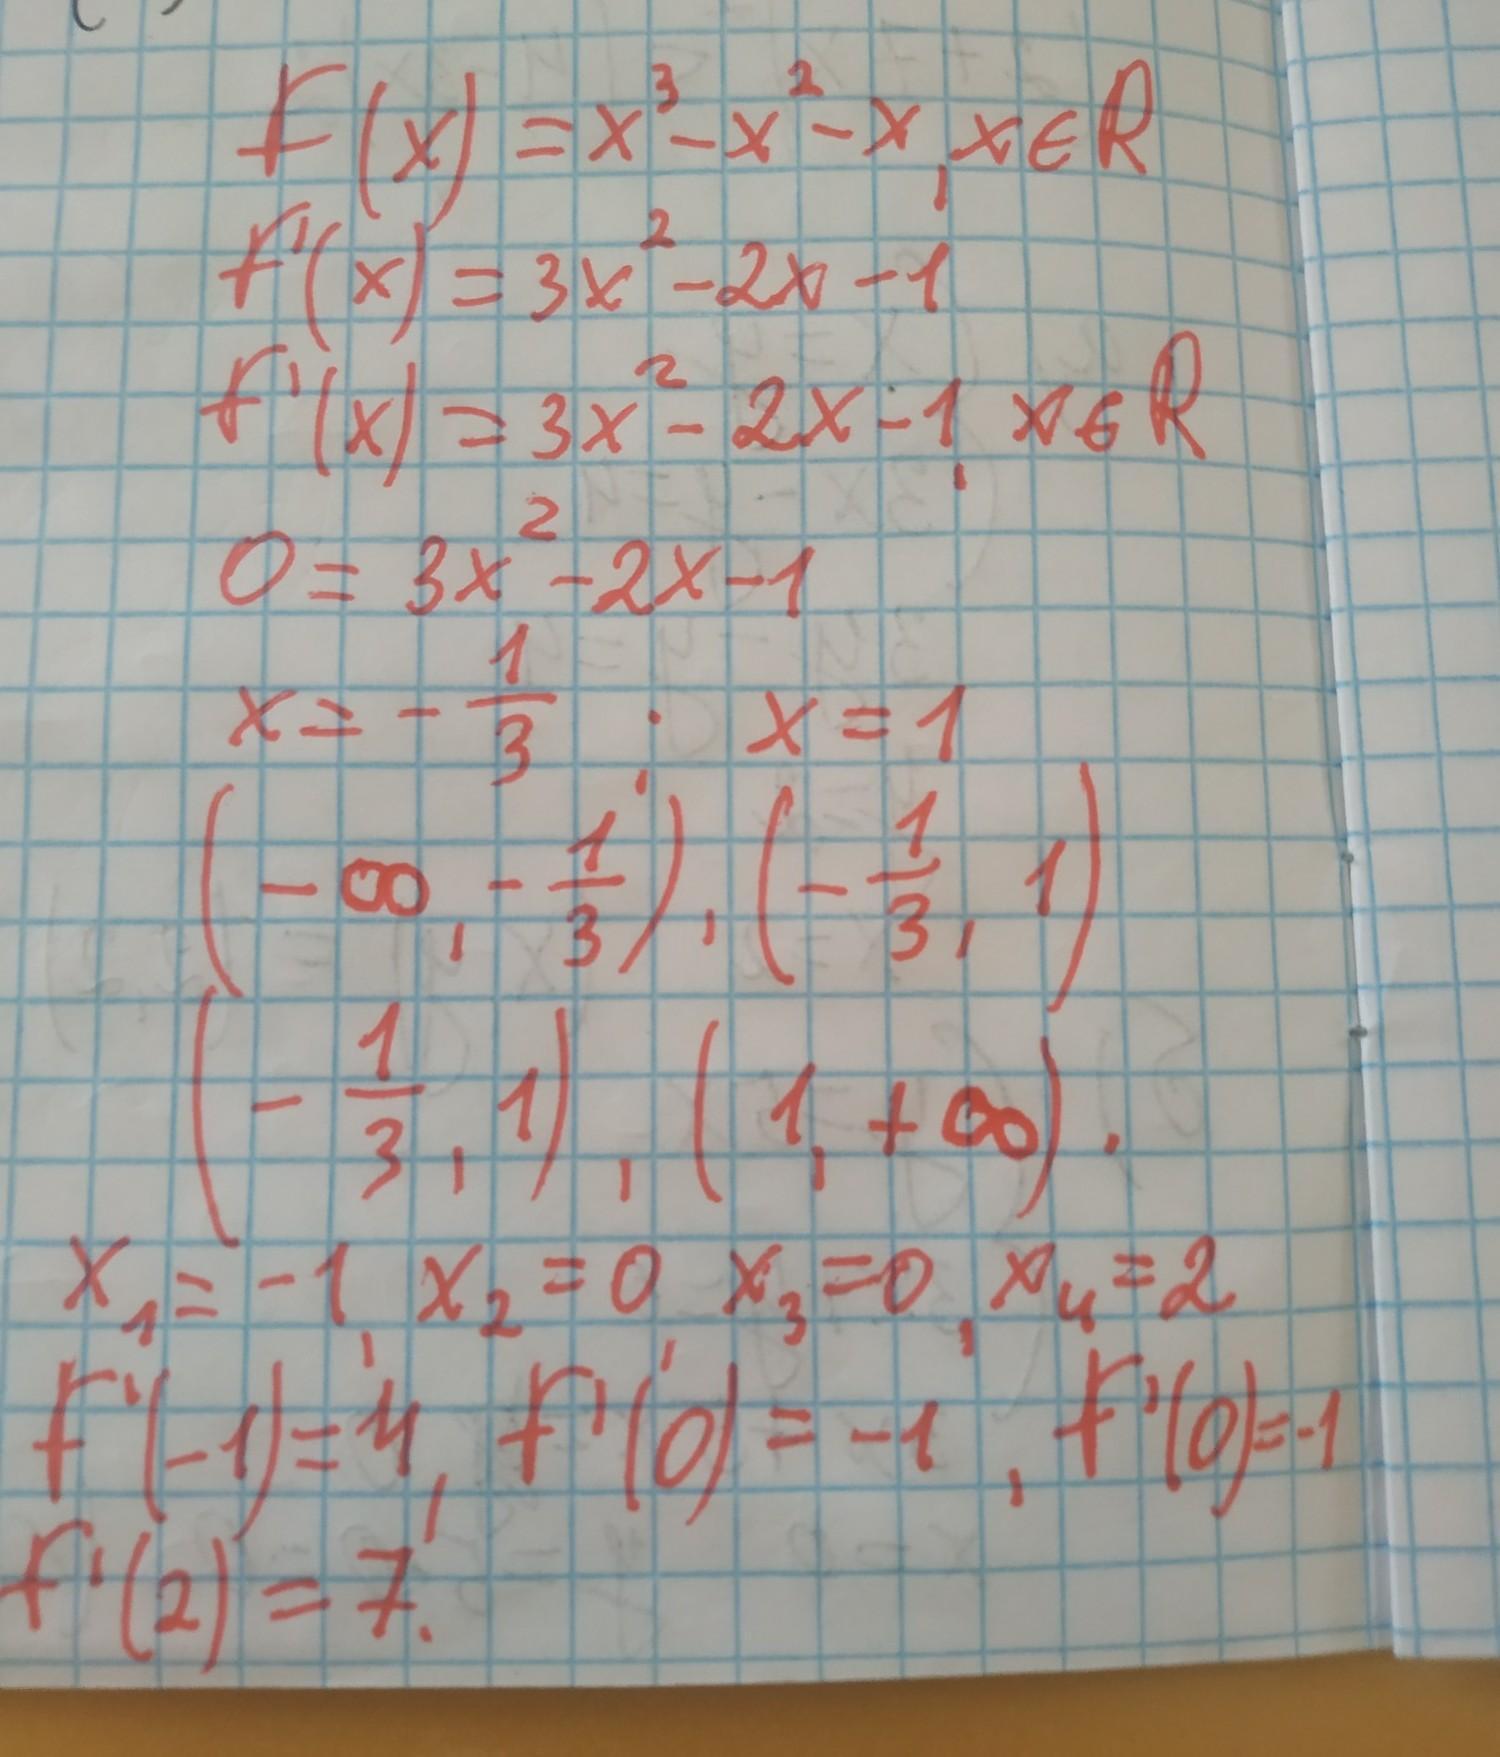 f(x) = x³ - x² - x, x ∈ R
f'(x) = 3x² - 2x - 1
f'(x) = 3x² - 2x - 1, x ∈ R
0 = 3x² - 2x - 1
x = - 1/3 ; x = 1
(- ∞, - 1/3), (- 1/3, 1)
(- 1/3, 1), (1, + ∞).
x₁ = -1, x₂ = 0, x₃ = 0, x₄ = 2
f'(-1) = 4, f'(0) = -1, f'(0) = -1
f'(2) = 7.